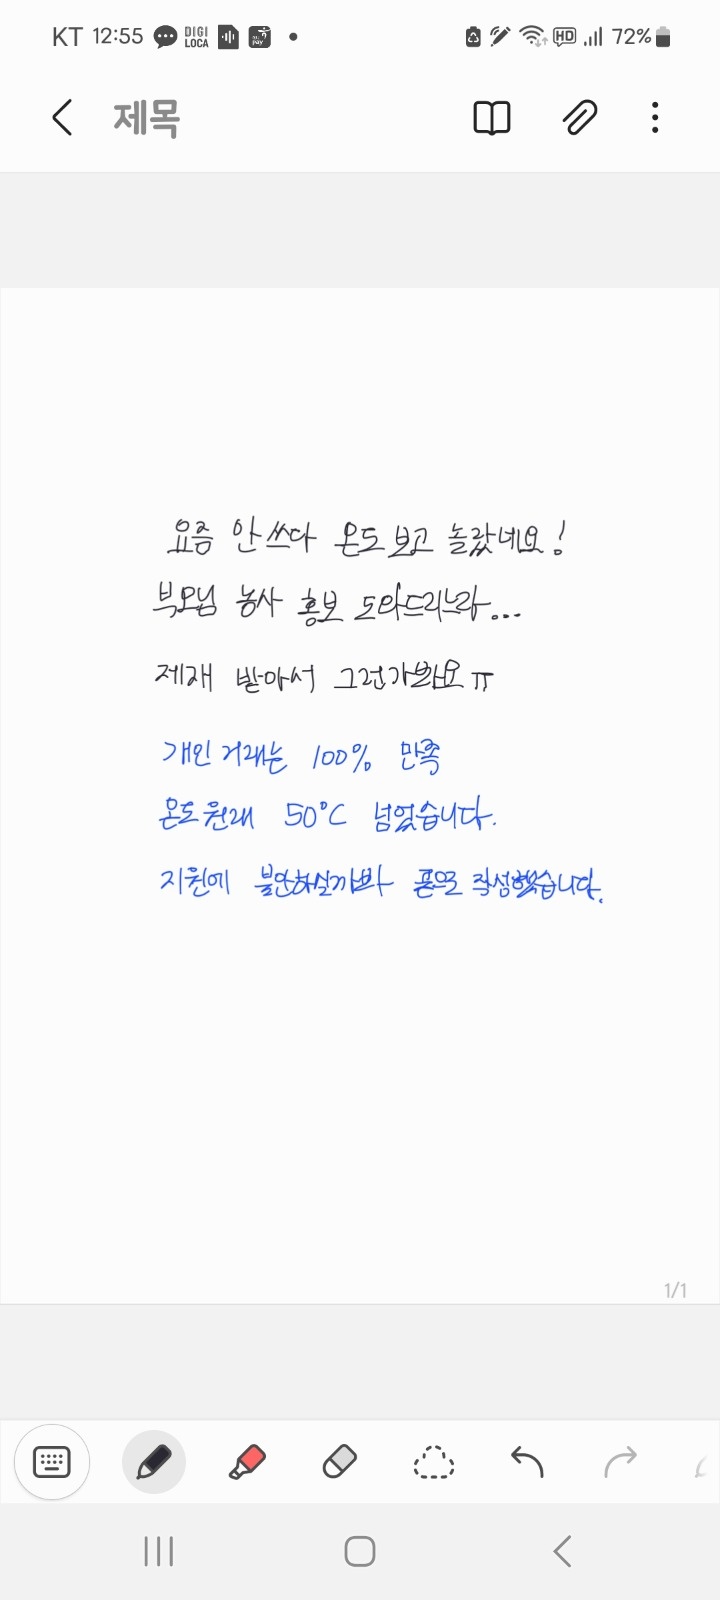 KT 12:55 DIGI LOCA pay HD 72%
제목
요즘 안쓰다 온도보고 놀랐네요!
부모님 농사 홍보 도와드리느라...
제재 받아서 그런가봐요ㅠ
개인거래는 100% 만족
온도원래 50°C 넘었습니다.
지원에 불안하실까봐 폰으로 작성했습니다.
1/1